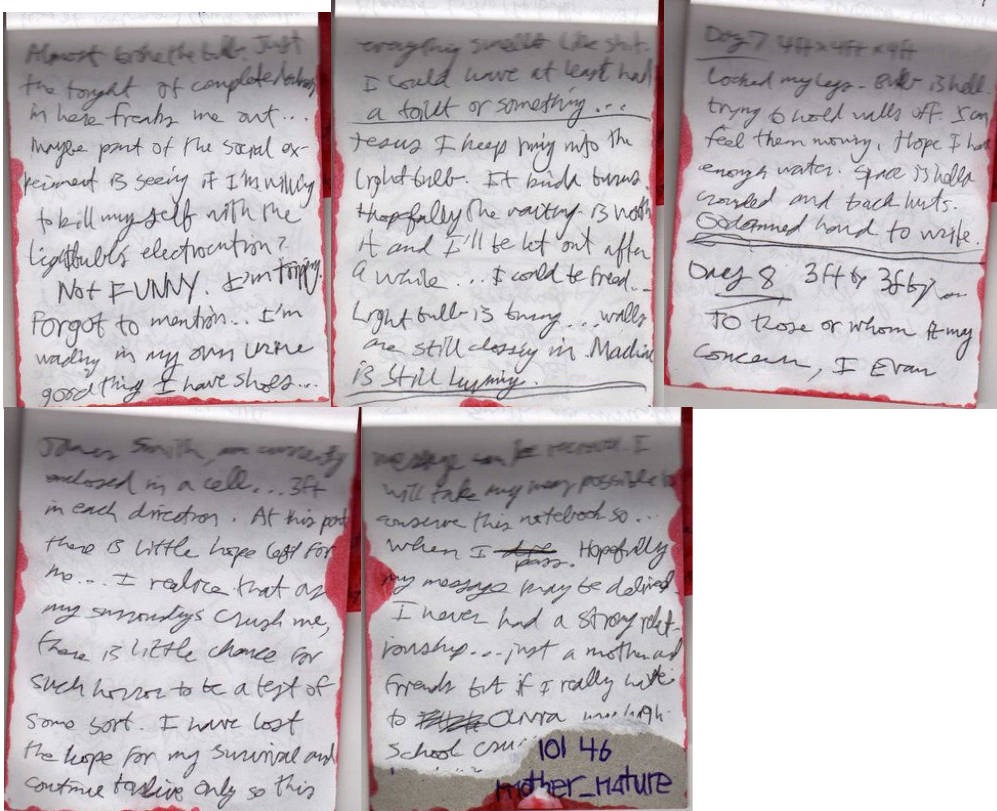 Almost broke the bulb. Just
the tought of complete darkness
in here freaks me out...
maybe part of the social ex-
periment is seeing if I'm willing
to kill myself with the
lightbulb's electrocution?
NOT FUNNY. I'm
Forgot to mention... I'm
wading in my own urine
good thing I have shoes...
everything smells like shit.
I could have at least had
a toilet or something...
Jesus I keep runing into the
lightbulb. It kinda burns.
Hopefully the waiting is worth
it and I'll be let out after
a while... I could be freed...
Light bulb is buzzing... walls
are still closing in. Machine
is still humming.
Day 7 4ft x 4ft x 4ft
Locked my legs. Bulb is hell.
trying to hold walls off. I can
feel them moving. Hope I have
enough water. Space is hella
crowded and back hurts.
Goddamned hard to write.
Day 8 3ft by 3ft by
To those or whom it my
concern, I Evan
James Smith, am currently
enclosed in a cell... 3ft
in each direction. At this point
there is little hope left for
me... I realize that as
my surroundings crush me,
there is little chance for
such horror to be a test of
some sort. I have lost
the hope for my survival and
continue to live only so this
message can be received. I
will take my every possible to
conserve this notebook so...
when I pass. Hopefully
my message may be delivered.
I never had a strong relat-
ionship... just a mother and
friends but if I really
to Olivia my high
school
101 46
mother_nature